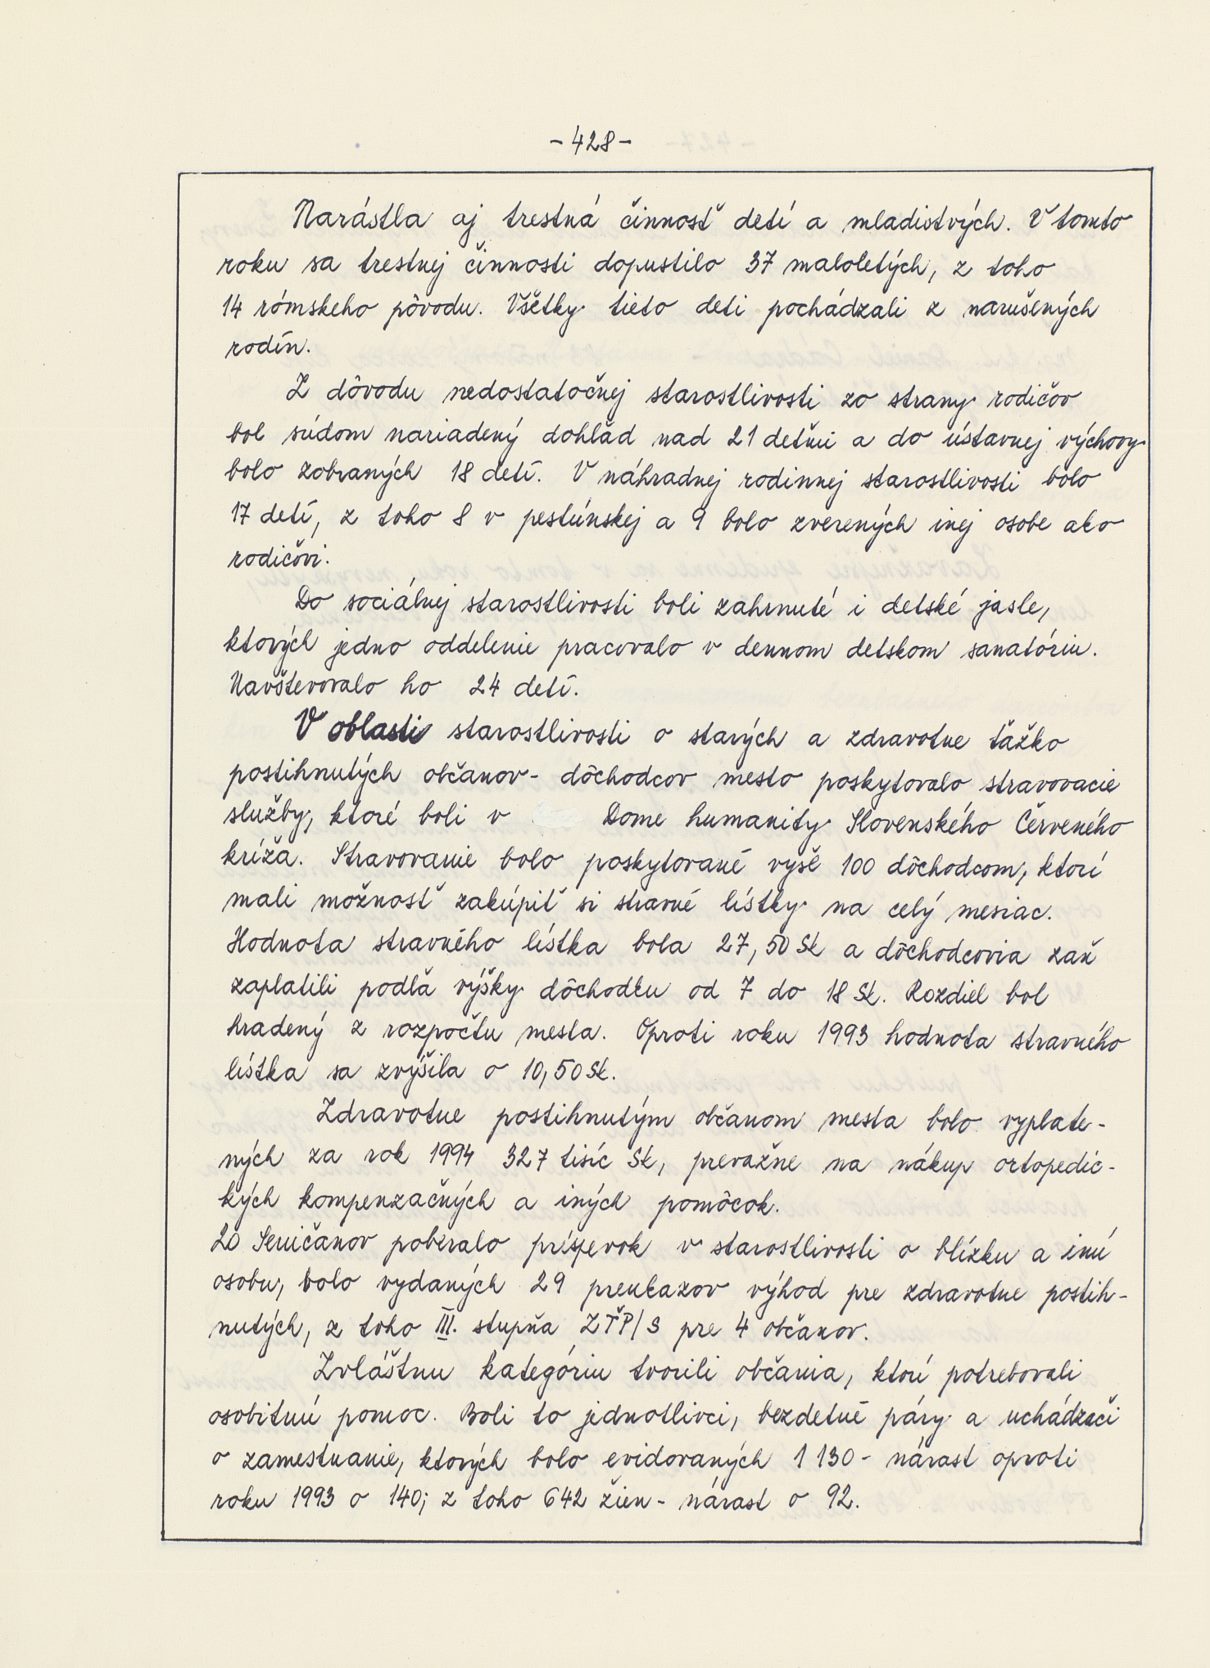 -428-
Narástla aj trestná činnosť detí a mladistvých. V tomto
roku sa trestnej činnosti dopustilo 37 maloletých, z toho
14 rómskeho pôvodu. Všetky tieto deti pochádzali z narušených
rodín.
Z dôvodu nedostatočnej starostlivosti zo strany rodičov
bol súdom nariadený dohľad nad 21 deťmi a do ústavnej výchovy
bolo zobraných 18 detí. V náhradnej rodinnej starostlivosti bolo
17 detí, z toho 8 v pestúnskej a 9 bolo zverených inej osobe ako
rodičovi.
Do sociálnej starostlivosti boli zahrnuté i detské jasle,
ktorých jedno oddelenie pracovalo v dennom detskom sanatóriu.
Navštevovalo ho 24 detí.
V oblasti starostlivosti o starých a zdravotne ťažko
postihnutých občanov - dôchodcov mesto poskytovalo stravovacie
služby, ktoré boli v Dome humanity Slovenského Červeného
kríža. Stravovanie bolo poskytované vyše 100 dôchodcom, ktorí
mali možnosť zakúpiť si stravné lístky na celý mesiac.
Hodnota stravného lístka bola 27,50 Sk a dôchodcovia zaň
zaplatili podľa výšky dôchodku od 7 do 18 Sk. Rozdiel bol
hradený z rozpočtu mesta. Oproti roku 1993 hodnota stravného
lístka sa zvýšila o 10,50 Sk.
Zdravotne postihnutým občanom mesta bolo vyplate-
ných za rok 1994 327 tisíc Sk, prevažne na nákup ortopedic-
kých kompenzačných a iných pomôcok.
20 Seničanov poberalo príspevok v starostlivosti o blízku a inú
osobu, bolo vydaných 29 preukazov výhod pre zdravotne postih-
nutých, z toho III. stupňa ZŤP/S pre 4 občanov.
Zvláštnu kategóriu tvorili občania, ktorí potrebovali
osobitnú pomoc. Boli to jednotlivci, bezdetné páry a uchádzači
o zamestnanie, ktorých bolo evidovaných 1 130 - nárast oproti
roku 1993 o 140; z toho 642 žien - nárast o 92.